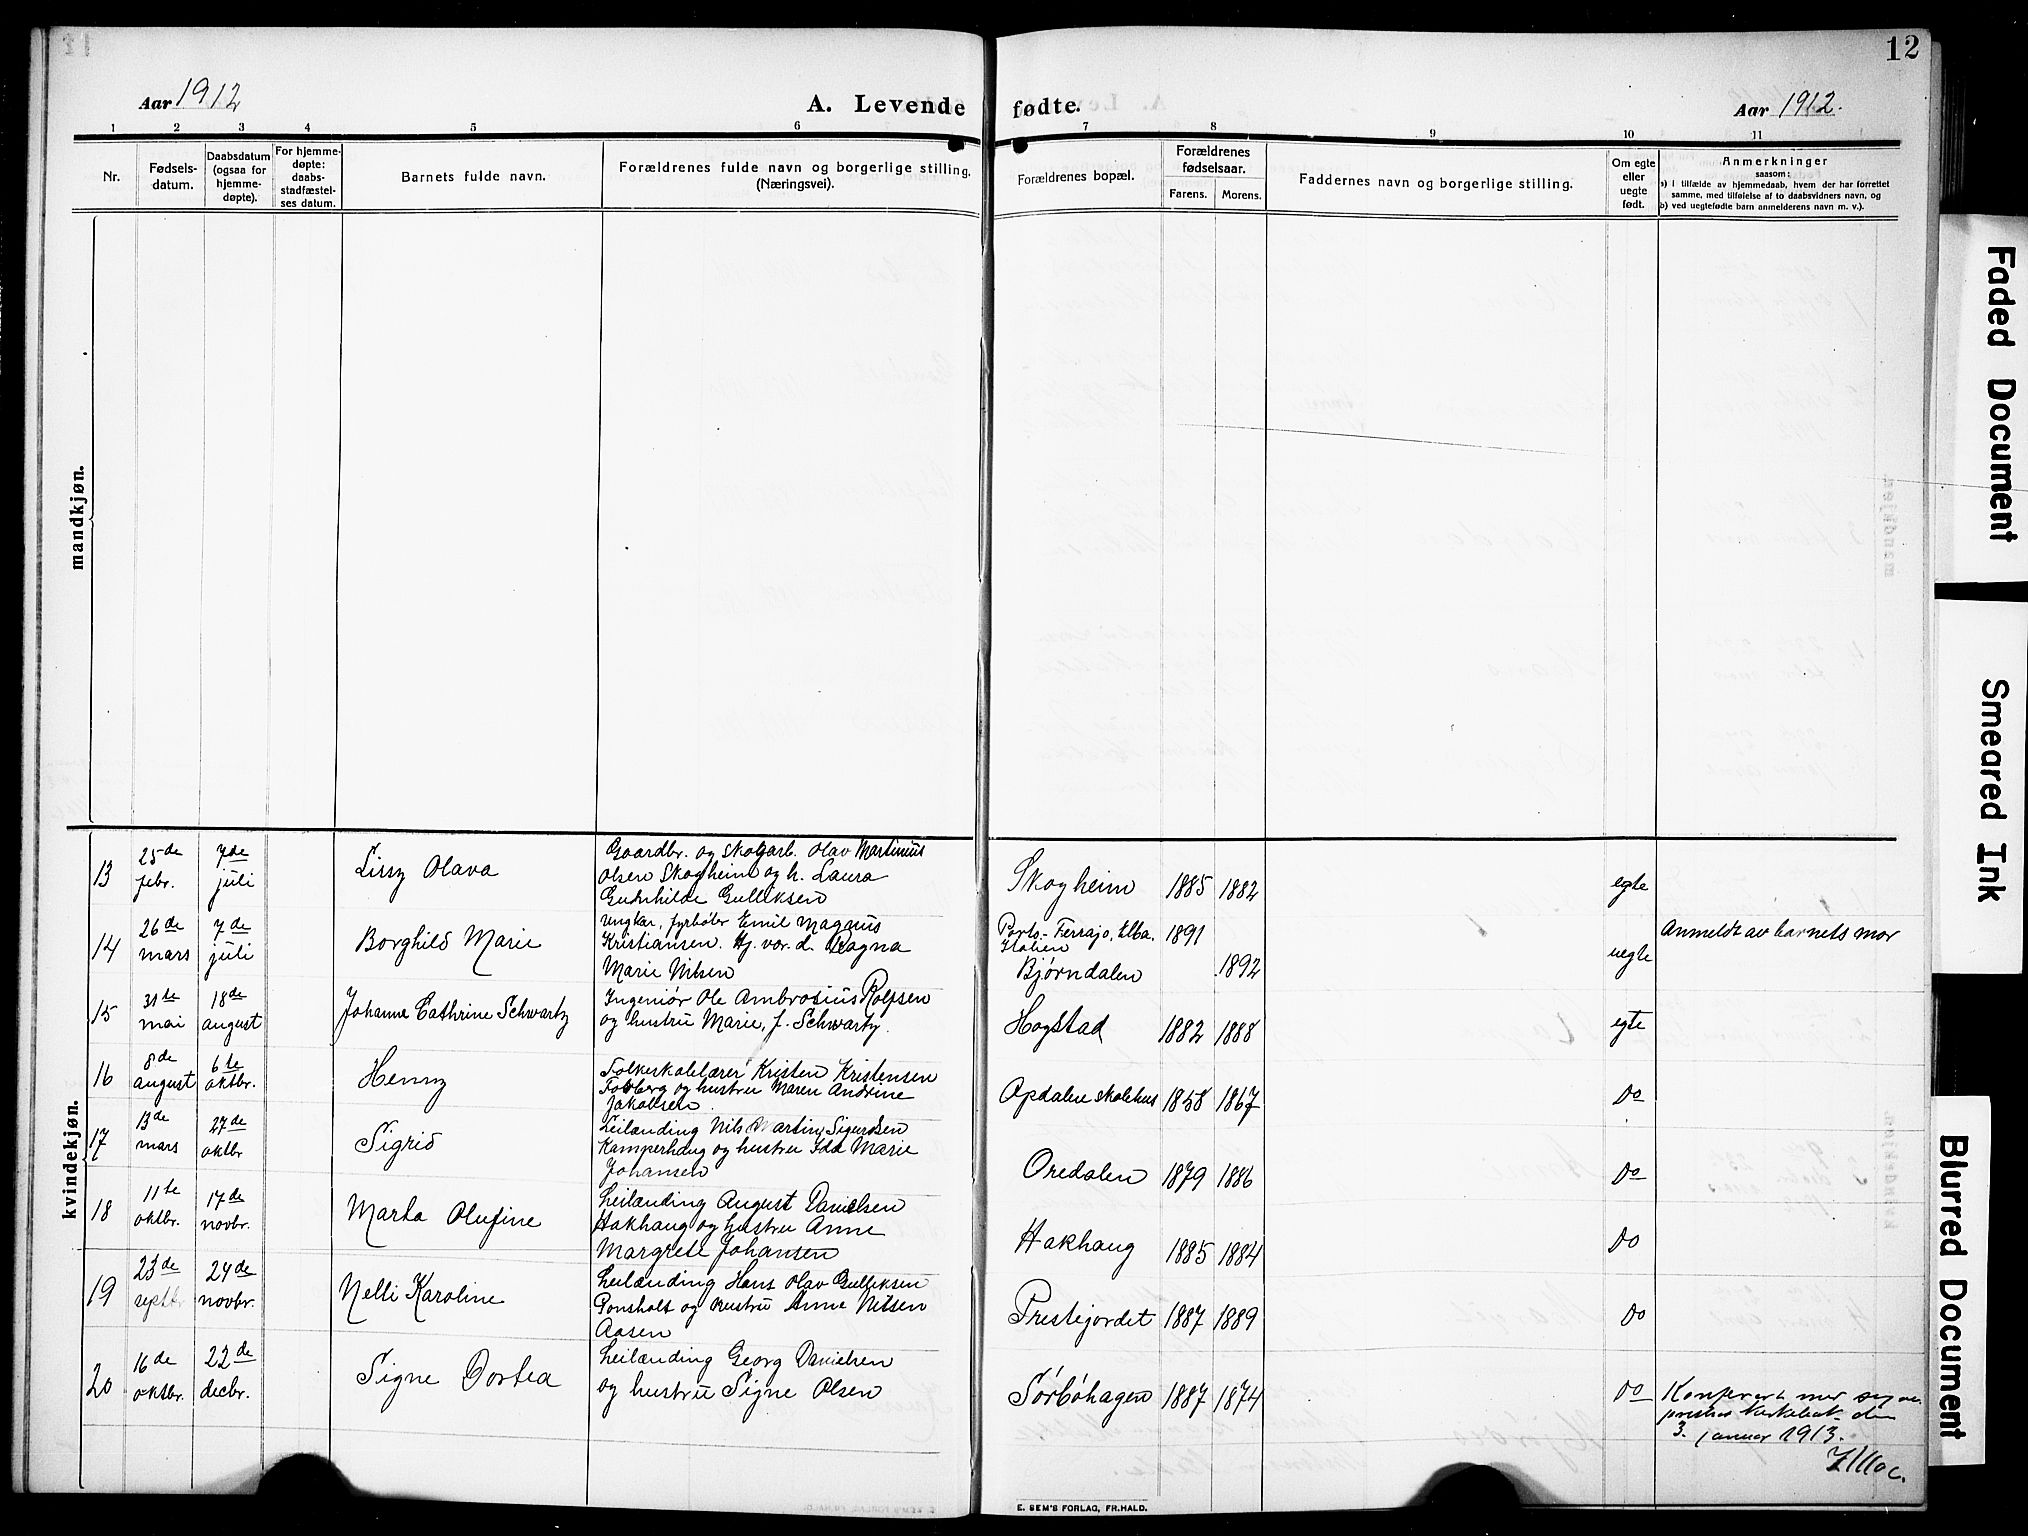 12
Aar 1912
A. Levende fødte.
Aar 1912.
1 2 3 4 5 6 7 8 9 10 11
Nr.
Fødsels-
datum.
Daabsdatum
(ogsaa for
hjemme-
døpte).
For hjemme-
døpte:
daabs-
stadfæstel-
ses datum.
Barnets fulde navn.
Forældrenes fulde navn og borgerlige stilling.
(Næringsvei).
Forældrenes bopæl.
Forældrenes
fødselsaar.
Farens. Morens.
Faddernes navn og borgerlige stilling.
Om egte
eller
uegte
født.
Anmerkninger
saasom:
a) i tilfælde av hjemmedaab, hvem der har forrettet
samme, med tilføielse af to daabsvidners navn, og
b) ved uegtefødte barn anmelderens navn m. v.).
mandkjøn.
kvindekjøn.
13
25de
febr.
7de
juli
Lissy Olava
Gaardbr. og skogarb. Olav Martinius
Olsen Skogheim og h. Laura
Gudnhilde Gulliksen
Skogheim 1885 1882 egte
14
26de
mars
7de
juli
Borghild Marie
Ungkar, fyrbøter Emil Magnus
Kristiansen. Hj. vær. d. Ragna
Marie Nilsen
Porto-Ferrajo, Elba. 1891
Italien
Bjørndalen 1892
uegte
Anmeldt av barnets mor
15
31te
mai
18de
august
Johanne Cathrine Schwartz
Ingeniør Ole Ambrosius Rolfsen
og hustru Marie, f. Schwartz.
Hogstad 1882 1888 egte
16
8de
august
6te
oktbr.
Henny
Folkeskolelærer Kristen Kristensen
Foldberg og hustru Maren Andrine
Jakobsen
Opdalen skolehus 1858 1867 do
17
13de
mars
27de
oktbr
Sigrid
Leilænding Nils Martin Sigurdsen
Kamperhaug og hustru Ida Marie
Johansen
Oredalen 1879 1886 do
18
11te
oktbr.
17de
novbr.
Marta Olufine
Leilænding August Danielsen
Hakhaug og hustru Anne
Margrete Johansen
Hakhaug 1885 1884 do
19
23de
septbr
24de
novbr.
Nelli Karoline
Leilænding Hans Olav Gulliksen
Ponsholt og hustru Anne Nilsen
Aasen
Prestejordet 1887 1889 do
20
16de
oktbr.
22de
decbr.
Signe Dortea
Leilænding Georg Danielsen
og hustru Signe Olsen
Sørbøhagen 1887 1874 do
Konferert med sogne-
prestens kirkebok den
3. januar 1913.
E. SEM'S FORLAG, FR.HALD.
Faded Document
Smeared Ink
Blurred Document